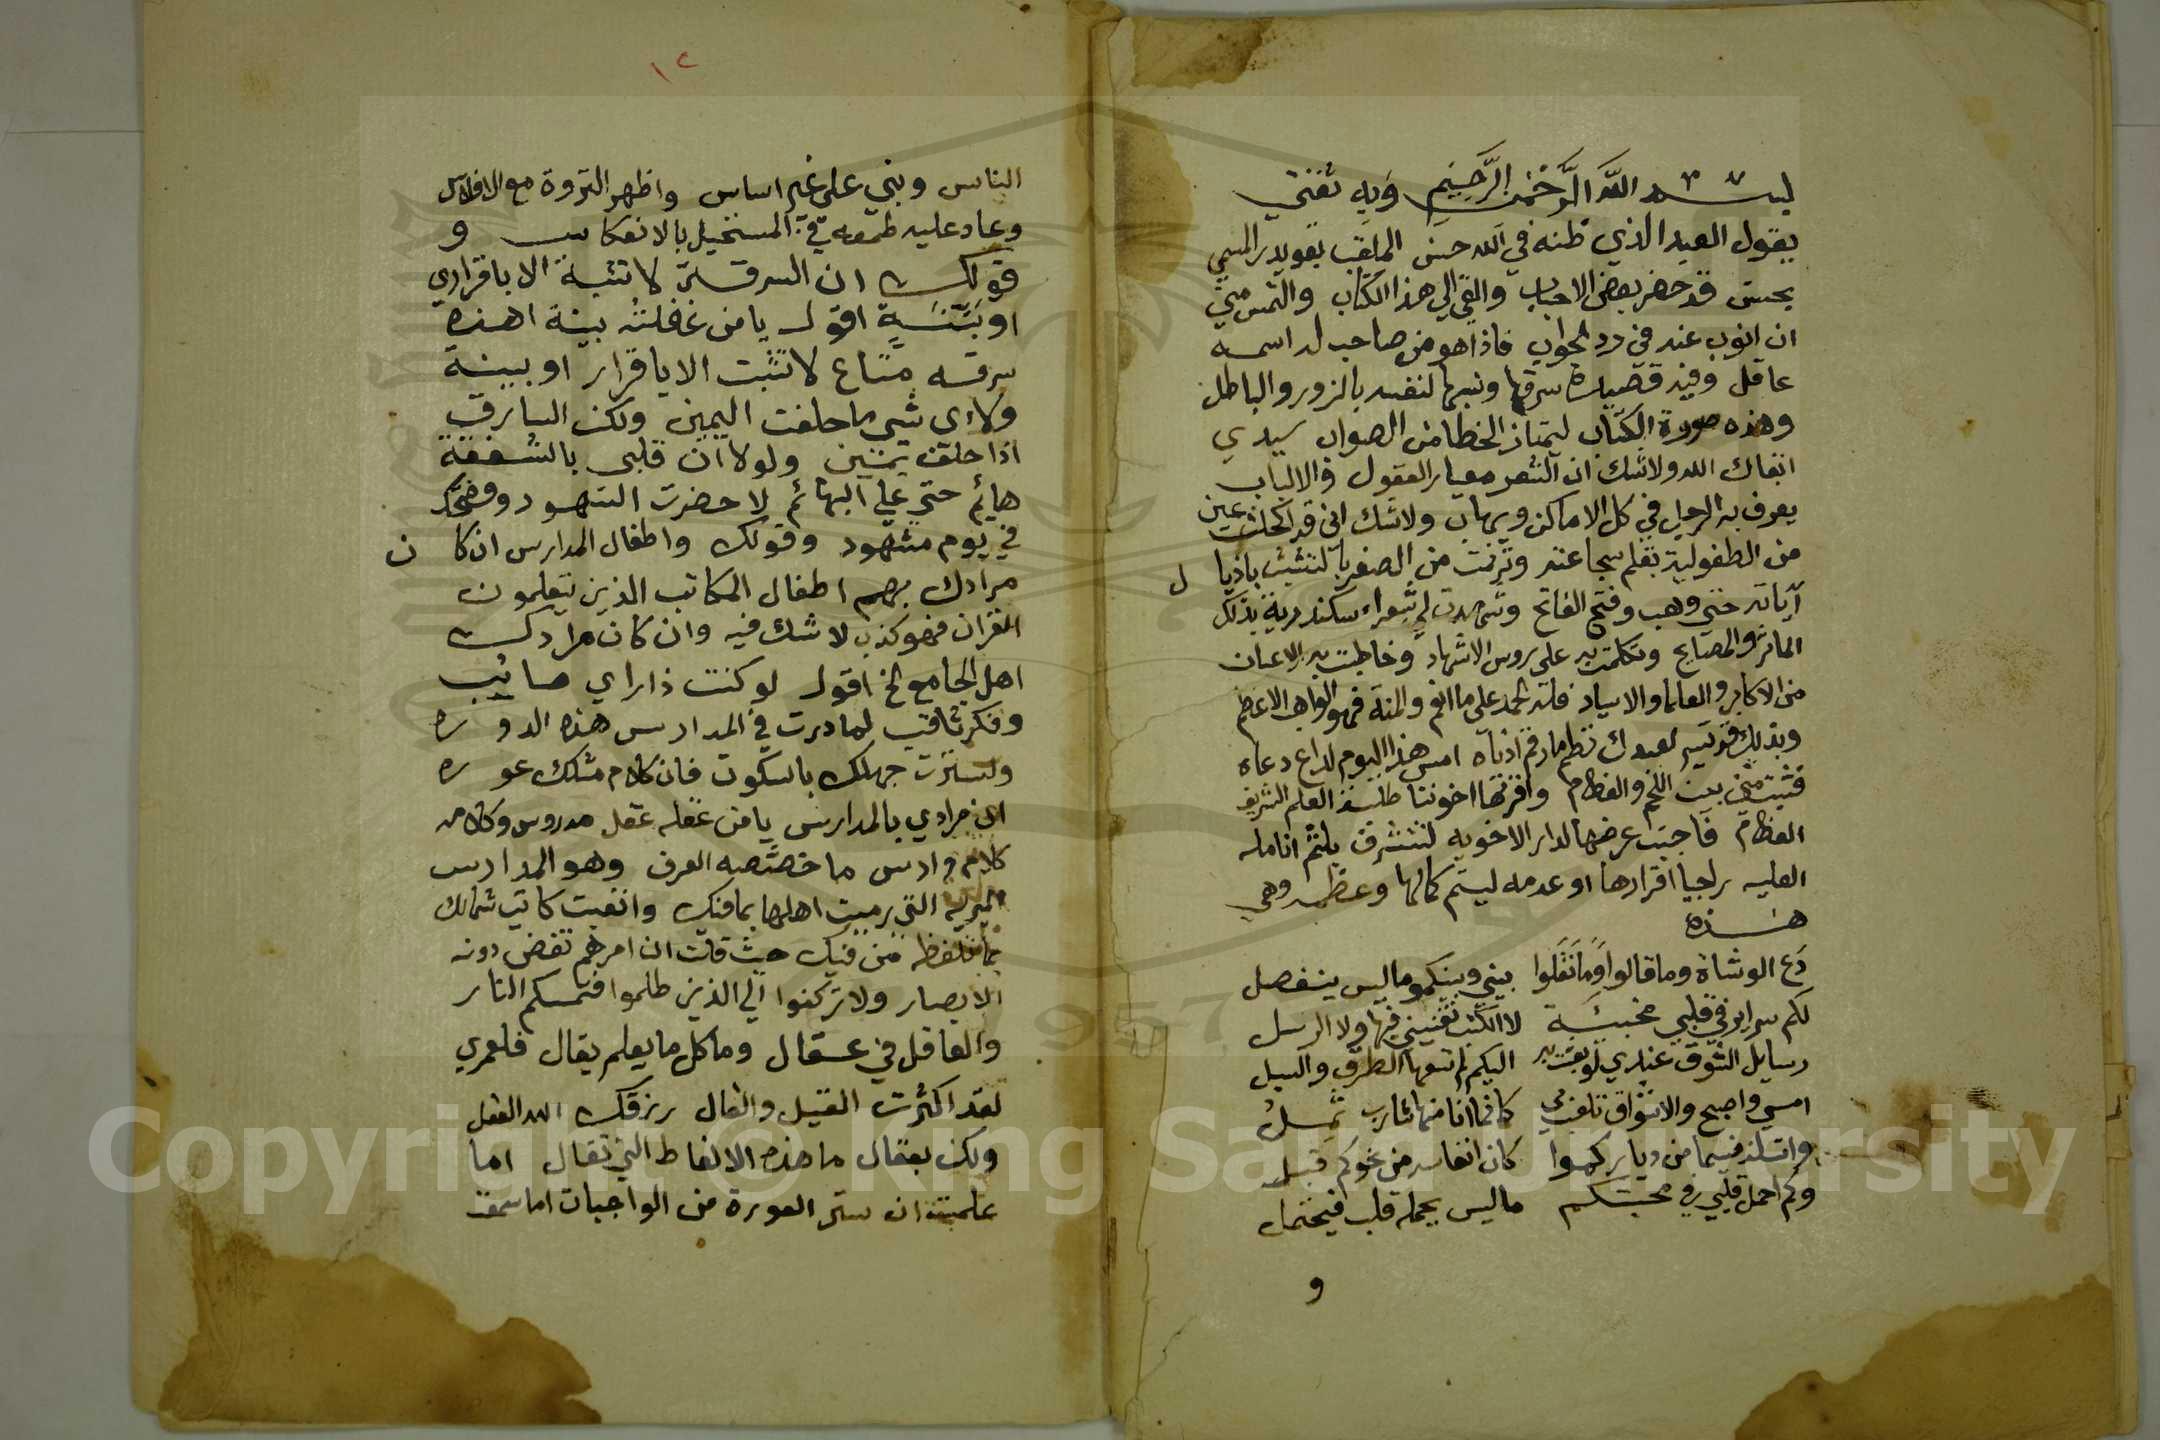 بسم الله الرحمن الرحيم وبه ثقتي
يقول العبد الذي ظنه في الله حسن الملقب بقويدر المسمي
بحسن قد حضر بعض الاحباب والقي الي هذا الكتاب والتمس مني
ان انوب عنه في رد الجواب فاذا هو من صاحب له اسمه
عاقل وفيه قصيدة سرقها ونسبها لنفسه بالزور والباطل
وهذه صورة الكتاب ليمتاز الخطا من الصواب سيدي
ابقاك الله ولا شك ان الشعر معيار العقول والالباب
يعرف به الرجل في كل الاماكن ويهاب ولا شك اني قد اكحلت عين
من الطفولية بقلم سجاعته وترنمت من الصغر بالتشبث باذيال
آياته حتي وهب وفتح الفاتح وشهدت لي شعراء سكندرية بذلك
الماثر والمصابح وتكلمت به علي روس الاشهاد وخاطبت به الاعيان
من الاكابر والعلما والاسياد فلله الحمد علي ما انعم والمنة فهو الواهب الاعظم
وبذلك قد تيسر لعبدك نظم ما رقم ادناه امس هذا اليوم لداع دعاه
العظام فاجبت عرضها لدار الاخويه لتتشرف بلثم انامله
العليه راجيا اقرارها او عدمه ليتم كمالها وعظمه وهي
هذه
دع الوشاة وما قالوا وما نقلوا بيني وبينكمو ما ليس ينفصل
لكم سراير في قلبي مخبئة لا الكتب تغنيني فيها ولا الرسل
رسايل الشوق عندي لو بعثت بها اليكم لم تسعها الطرق والسبل
امسي واصبح والاشواق تلعب بي كانما انا منها شارب ثمل
واستلذ نسيما من دياركموا كان انفاسه من نحوكم قبل
وكم احمل قلبي في محبتكم ما ليس يحمله قلب فيحتمل
و
١٢
الناس وبني علي غير اساس واظهر الثروة مع الافلاس
وعاد عليه طمعه في المستحيل بالانعكاس و
قولك ان السرقة لا تثبت الا باقراري
او ببينة اقول يا من غفلته بينة اهذه
سرقه متاع لا تثبت الا باقرار او ببينة
ولاي شي ما حلفت اليمين ولكن السارق
اذا حلف يمين ولولا ان قلبي بالشفقة
هايم حتي علي البهائم لاحضرت الشهود وفضحتك
في يوم مشهود وقولك واطفال المدارس ان كان
مرادك بهم اطفال المكاتب الذين يتعلمون
القران فهو كذب لا شك فيه وان كان مرادك
اهل الجامع الخ اقول لو كنت ذا راي صائب
وفكر ثاقب لما درت في المدارس هذه الدوره
ولسترت جهلك بالسكوت فان كلام مثلك عوره
لان مرادي بالمدارس يا من عقله عقل مدروس وكلامه
كلام دارس ما خصصه العرف وهو المدارس
الميريه التي رميت اهلها بما فيك واتعبت كاتب شمالك
بما تلفظه من فيك حيث قلت ان امرهم تغض دونه
الابصار ولا تركنوا الي الذين ظلموا فتمسكم النار
والعاقل في عقال وما كل ما يعلم يقال فلعمري
لقد اكثرت القيل والقال رزقك الله العقل
ولكن بعقال ما هذه الالفاظ التي تقال اما
علمت ان ستر العورة من الواجبات اما سمعت
Copyright © King Saud University
1957